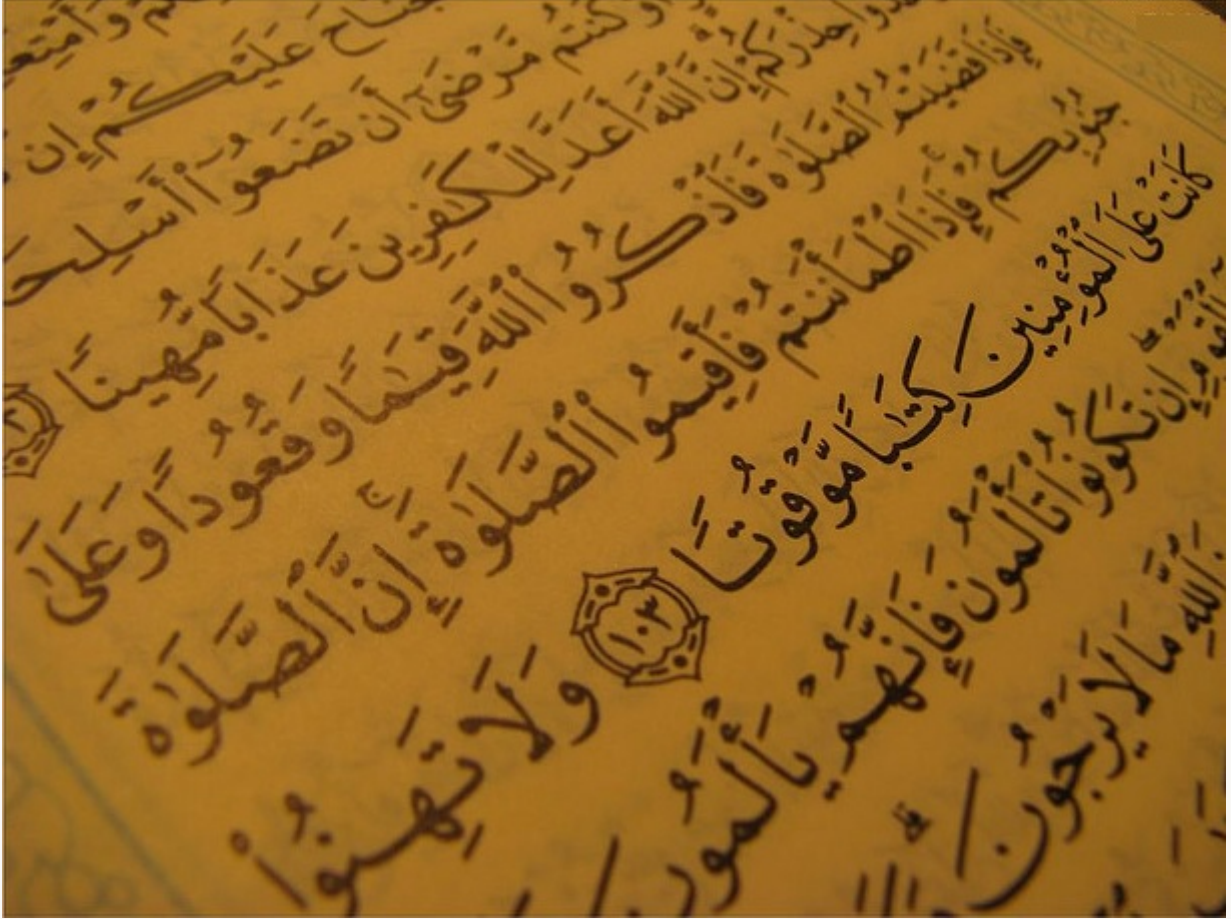 جُنَاحَ عَلَيْكُمْ إِن
أَوْ كُنتُم مَّرْضَىٰٓ أَن تَضَعُوٓا۟ أَسْلِحَ
حِذْرَكُمْ إِنَّ ٱللَّهَ أَعَدَّ لِلْكَـٰفِرِينَ عَذَابًا مُّهِينًا
فَإِذَا قَضَيْتُمُ ٱلصَّلَوٰةَ فَٱذْكُرُوا۟ ٱللَّهَ قِيَـٰمًا وَقُعُودًا وَعَلَىٰ
جُنُوبِكُمْ ۚ فَإِذَا ٱطْمَأْنَنتُمْ فَأَقِيمُوا۟ ٱلصَّلَوٰةَ ۚ إِنَّ ٱلصَّلَوٰةَ
كَانَتْ عَلَى ٱلْمُؤْمِنِينَ كِتَـٰبًا مَّوْقُوتًا ١٠٣ وَلَا تَهِنُوا۟
ٱلْقَوْمِ ۖ إِن تَكُونُوا۟ تَأْلَمُونَ فَإِنَّهُمْ يَأْلَمُونَ
ٱللَّهِ مَا لَا يَرْجُونَ ۗ